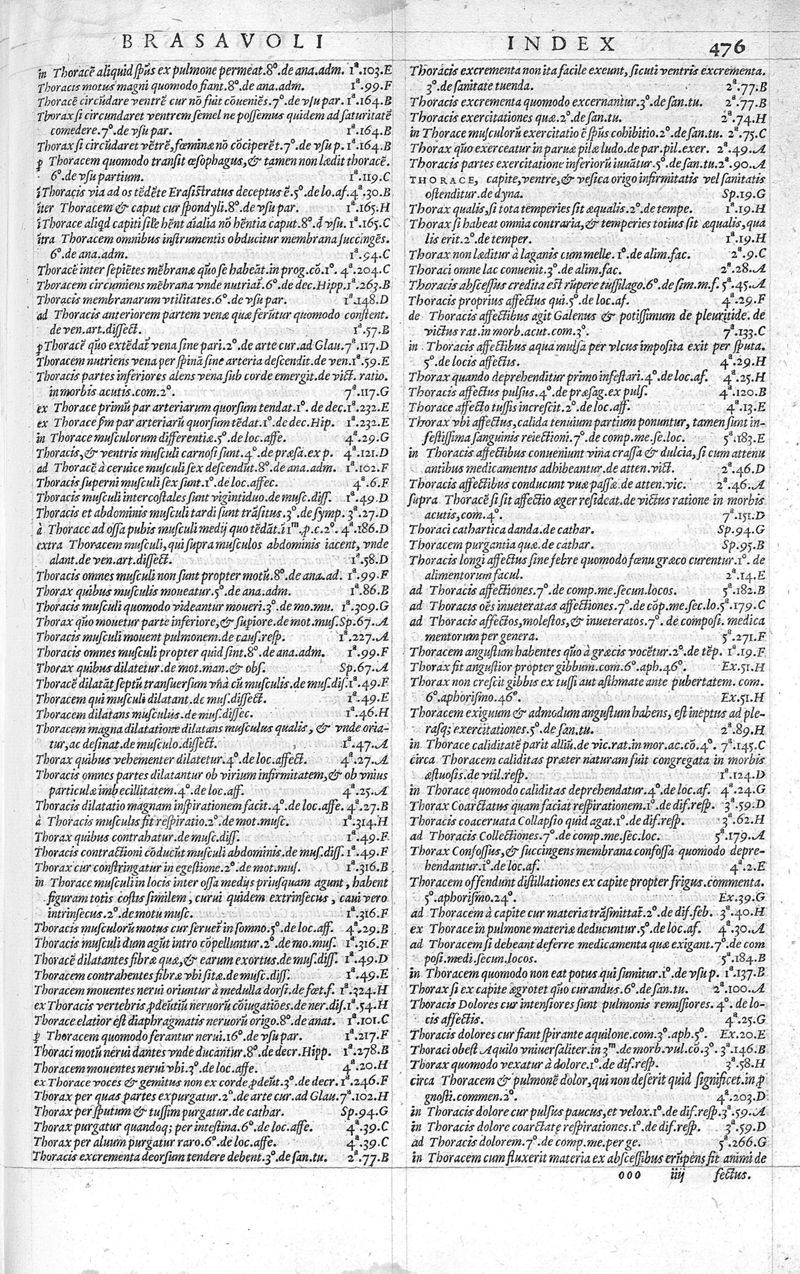 BRASAVOLI
INDEX 476
in Thoracē aliquid spūs ex pulmone permeat.8°.de ana.adm. 1ª.103.E
Thoracis motus magni quomodo fiant.8°.de ana.adm. 1ª.99.F
Thoracē circūdare ventrē cur nō fuit cōueniēs.7°.de vsu par. 1ª.164.B
Thorax si circundaret ventrem semel ne possemus quidem ad saturitatē
comedere.7°.de vsu par. 1ª.164.B
Thorax si circūdaret vētrē, fœminæ nō cōciperēt.7°.de vsu p. 1ª.164.B
ꝑ Thoracem quomodo transit œsophagus, & tamen non lædit thoracē.
6°.de vsu partium. 1ª.119.C
ī Thoracis via ad os tēdēte Erasistratus deceptus ē.5°.de lo.af.4ª.30.B
iter Thoracem & caput cur spondyli.8°.de vsu par. 1ª.165.H
ī Thorace aliqd capiti sile hēnt aialia nō hēntia caput.8°.d vsu. 1ª.165.C
itra Thoracem omnibus instrumentis obducitur membrana succingēs.
6°.de ana.adm. 1ª.94.C
Thoracē inter sepiētes mēbranæ quō se habeāt.in prog.cō.1°. 4ª.204.C
Thoracem circuniens mēbrana vnde nutriat̄.6°.de dec.Hipp.1ª.263.B
Thoracis membranarum vtilitates.6°.de vsu par. 1ª.148.D
ad Thoracis anteriorem partem venæ quæ ferūtur quomodo constent.
de ven.art.dissect. 1ª.57.B
ꝑ Thoracē quo extēdat̄ vena sine pari.2°.de arte cur.ad Glau.7ª.117.D
Thoracem nutriens vena per spinā sine arteria descendit.de ven.1ª.59.E
Thoracis partes inferiores alens vena sub corde emergit.de vict. ratio.
in morbis acutis.com.2°. 7ª.117.G
ex Thorace primū par arteriarum quorsum tendat.1°. de dec.1ª.232.E
ex Thorace ꝑm par arteriarū quorsum tēdat.1°.de dec.Hip. 1ª.232.E
in Thorace musculorum differentiæ.5°.de loc.affe. 4ª.29.G
Thoracis, & ventris musculi carnosi sunt.4°.de præsa.ex p. 4ª.121.D
ad Thoracē à ceruice musculi sex descendūt.8°.de ana.adm. 1ª.102.F
Thoracis superni musculi sex sunt.1°.de loc.affec. 4ª.6.F
Thoracis musculi intercostales sunt vigintiduo.de musc.diss. 1ª.49.D
Thoracis et abdominis musculi tardi sunt trāsitus.3°.de symp. 3ª.27.D
à Thorace ad ossa pubis musculi medij quo tēdāt.ī 1ᵐ.p.c.2°. 4ª.186.D
extra Thoracem musculi, qui supra musculos abdominis iacent, vnde
alant.de ven.art.dissect. 1ª.58.D
Thoracis omnes musculi non sunt propter motū.8°.de ana.ad. 1ª.99.F
Thorax quibus musculis moueatur.5°.de ana.adm. 1ª.86.B
Thoracis musculi quomodo videantur moueri.3°.de mo.mu. 1ª.309.G
Thorax quō mouetur parte inferiore, & supiore.de mot.mus.Sp.67.A
Thoracis musculi mouent pulmonem.de caus.resp. 1ª.227.A
Thoracis omnes musculi propter quid sint.8°.de ana.adm. 1ª.99.F
Thorax quibus dilatetur.de mot.man.& obs. Sp.67.A
Thoracē dilatāt septū transuersum vnà cū musculis.de mus.dis.1ª.49.F
Thoracem qui musculi dilatant.de mus.dissect. 1ª.49.E
Thoracem dilatans musculus.de mus.dissec. 1ª.46.H
Thoracem magna dilatatione dilatans musculus qualis, & vnde oria-
tur, ac desinat.de musculo.dissect. 1ª.47.A
Thorax quibus vehementer dilatetur.4°.de loc.affect. 4ª.27.A
Thoracis omnes partes dilatantur ob virium infirmitatem, & ob vnius
particulæ imbecillitatem.4°.de loc.aff. 4ª.25.A
Thoracis dilatatio magnam inspirationem facit.4°.de loc.affe.4ª.27.B
à Thoracis musculis fit respiratio.2°.de mot.musc. 1ª.314.H
Thorax quibus contrahatur.de musc.diss. 1ª.49.F
Thoracis contractioni cōducūt musculi abdominis.de mus.diss.1ª.49.F
Thorax cur constringatur in egestione.2°.de mot.mus. 1ª.316.B
in Thorace musculi in locis inter ossa medijs priusquam agunt, habent
figuram totis costis similem, curui quidem extrinsecus, caui vero
intrinsecus.2°.de motu musc. 1ª.316.F
Thoracis musculorū motus cur seruet in somno.5°.de loc.aff. 4ª.29.B
Thoracis musculi dum agūt intro cōpelluntur.2°.de mo.mus. 1ª.316.F
Thoracē dilatantes fibræ quæ, & earum exortus.de mus.diss. 1ª.49.D
Thoracem contrahentes fibræ vbi sitæ.de musc.diss. 1ª.49.E
Thoracem mouentes nerui oriuntur à medulla dorsi.de fœt.f. 1ª.324.H
ex Thoracis vertebris ꝓdeūtiū neruorū cōiugatiōes.de ner.dis.1ª.54.H
Thorace elatior est diaphragmatis neruorū origo.8°.de anat. 1ª.101.C
ꝑ Thoracem quomodo ferantur nerui.16°.de vsu par. 1ª.217.F
Thoraci motū nerui dantes vnde ducantur.8°.de decr.Hipp. 1ª.278.B
Thoracem mouentes nerui vbi.3°.de loc.affe. 4ª.20.H
ex Thorace voces & gemitus non ex corde ꝓdeūt.3°.de decr.1ª.246.F
Thorax per quas partes expurgatur.2°.de arte cur.ad Glau.7ª.102.H
Thorax per sputum & tussim purgatur.de cathar. Sp.94.G
Thorax purgatur quandoq; per intestina.6°.de loc.affe. 4ª.39.C
Thorax per aluum purgatur raro.6°.de loc.affe. 4ª.39.C
Thoracis excrementa deorsum tendere debent.3°.de san.tu. 2ª.77.B
Thoracis excrementa non ita facile exeunt, sicuti ventris excrementa.
3°.de sanitate tuenda. 2ª.77.B
Thoracis excrementa quomodo excernantur.3°.de san.tu. 2ª.77.B
Thoracis exercitationes quæ.2°.de san.tu. 2ª.74.H
in Thorace musculorū exercitatio ē spūs cohibitio.2°.de san.tu. 2ª.75.C
Thorax quō exerceatur in paruæ pilæ ludo.de par.pil.exer. 2ª.49.A
Thoracis partes exercitatione inferiorū iuuātur.5°.de san.tu.2ª.90.A
THORACE, capite, ventre, & vesica origo infirmitatis vel sanitatis
ostenditur.de dyna. Sp.19.G
Thorax qualis, si tota temperies sit æqualis.2°.de tempe. 1ª.19.H
Thorax si habeat omnia contraria, & temperies totius sit æqualis, qua
lis erit.2°.de temper. 1ª.19.H
Thorax non læditur à laganis cum melle.1°.de alim.fac. 2ª.9.C
Thoraci omne lac conuenit.3°.de alim.fac. 2ª.28.A
Thoracis abscessus credita est rūpere tussilago.6°.de sim.m.f. 5ª.45.A
Thoracis proprius affectus qui.5°.de loc.af. 4ª.29.F
de Thoracis affectibus agit Galenus & potissimum de pleuritide. de
victus rat.in morb.acut.com.3°. 7ª.133.C
in Thoracis affectibus aqua mulsa per vlcus imposita exit per sputa.
5°.de locis affectis. 4ª.29.H
Thorax quando deprehenditur primo infestari.4°.de loc.af. 4ª.25.H
Thoracis affectus pulsus.4°.de præsag.ex puls. 4ª.120.B
Thorace affecto tussis increscit.2°.de loc.aff. 4ª.13.E
Thorax vbi affectus, calida tenuium partium ponuntur, tamen sunt in-
festissima sanguinis reiectioni.7°.de comp.me.se.loc. 5ª.183.E
in Thoracis affectibus conueniunt vina crassa & dulcia, si cum attenu
antibus medicamentis adhibeantur.de atten.vict. 2ª.46.D
Thoracis affectibus conducunt vuæ passæ.de atten.vic. 2ª.46.A
supra Thoracē si sit affectio æger resideat.de victus ratione in morbis
acutis, com.4°. 7ª.151.D
Thoraci cathartica danda.de cathar. Sp.94.G
Thoracem purgantia quæ.de cathar. Sp.95.B
Thoracis longi affectus sine febre quomodo fœnu græco curentur.1°. de
alimentorum facul. 2ª.14.E
ad Thoracis affectiones.7°.de comp.me.secun.locos. 5ª.182.B
ad Thoracis oēs inueteratas affectiones.7°.de cōp.me.sec.lo.5ª.179.C
ad Thoracis affectos, molestos, & inueteratos.7°. de composi. medica
mentorum per genera. 5ª.271.F
Thoracem angustum habentes quō à græcis vocētur.2°.de tēp. 1ª.19.F
Thorax fit angustior propter gibbum.com.6°.aph.46°. Ex.51.H
Thorax non crescit gibbis ex tussi aut asthmate ante pubertatem. com.
6°.aphorismo.46°. Ex.51.H
Thoracem exiguum & admodum angustum habens, est ineptus ad ple-
rasq; exercitationes.5°.de san.tu. 2ª.89.H
in Thorace caliditatē parit alliū.de vic.rat.in mor.ac.cō.4°. 7ª.145.C
circa Thoracem caliditas præter naturam fuit congregata in morbis
æstuosis.de vtil.resp. 1ª.124.D
in Thorace quomodo caliditas deprehendatur.4°.de loc.af. 4ª.24.G
Thorax Coarctatus quam faciat respirationem.1°.de dif.resp. 3ª.59.D
Thoracis coaceruata Collapsio quid agat.1°.de dif.resp. 3ª.62.H
ad Thoracis Collectiones.7°.de comp.me.sec.loc. 5ª.179.A
Thorax Confossus, & succingens membrana confossa quomodo depre-
hendantur.1°.de loc.af. 4ª.2.E
Thoracem offendunt distillationes ex capite propter frigus.commenta.
5°.aphorismo.24°. Ex.39.G
ad Thoracem à capite cur materia trāsmittat̄.2°.de dif.feb. 3ª.40.H
ex Thorace in pulmone materiæ deducuntur.5°.de loc.af. 4ª.30.A
ad Thoracem si debeant deferre medicamenta quæ exigant.7°.de com
posi.medi.secun.locos. 5ª.184.B
in Thoracem quomodo non eat potus qui sumitur.1°.de vsu p. 1ª.137.B
Thorax si ex capite ægrotet quo curandus.6°.de san.tu. 2ª.100.A
Thoracis Dolores cur intensiores sunt pulmonis remissiores. 4°. de lo-
cis affectis. 4ª.25.G
Thoracis dolores cur fiant spirante aquilone.com.3°.aph.5°. Ex.20.E
Thoraci obest Aquilo vniuersaliter.in 3ᵐ.de morb.vul.cō.3°. 3ª.146.B
Thorax quomodo vexatur à dolore.1°.de dif.resp. 3ª.58.H
circa Thoracem & pulmonē dolor, qui non deserit quid significet.in ꝓ
gnosti.commen.2°. 4ª.203.D
in Thoracis dolore cur pulsus paucus, et velox.1°.de dif.resp.3ª.59.A
in Thoracis dolore coarctatę respirationes.1°.de dif.resp. 3ª.59.D
ad Thoracis dolorem.7°.de comp.me.per ge. 5ª.266.G
in Thoracem cum fluxerit materia ex abscessibus erūpens fit animi de
ooo iiij fectus.